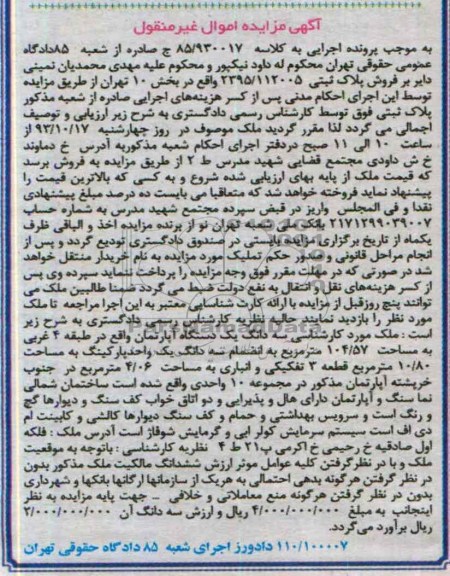 آگهی مزایده اموال غیرمنقول
به موجب پرونده اجرایی به کلاسه ۸۵/۹۳۰۰۱۷ ج صادره از شعبه ۸۵دادگاه
عمومی حقوقی تهران محکوم له داود نیکپور و محکوم علیه مهدی محمدیان ثمینی
دایر بر فروش پلاک ثبتی ۲۳۹۵/۱۱۲۰۰۵ واقع در بخش ۱۰ تهران از طریق مزایده
توسط این اجرای احکام مدنی پس از کسر هزینه‌های اجرایی صادره از شعبه مذکور
پلاک ثبتی فوق توسط کارشناس رسمی دادگستری به شرح زیر ارزیابی و توصیف
اجمالی می گردد لذا مقرر گردید ملک موصوف در روز چهارشنبه ۹۳/۱۰/۱۷ از
ساعت ۱۰ الی ۱۱ صبح دردفتر اجرای احکام شعبه مذکوربه آدرس خ دماوند
خ ش داودی مجتمع قضایی شهید مدرس ط ۲ از طریق مزایده به فروش برسد
که قیمت ملک از پایه بهای ارزیابی شده شروع و به کسی که بالاترین قیمت را
پیشنهاد نماید فروخته خواهد شد که متعاقبا می بایست ده درصد مبلغ پیشنهادی
نقدا و فی المجلس واریز در قبض سپرده مجتمع شهید مدرس به شماره حساب
۲۱۷۱۲۹۹۰۳۹۰۰۷ بانک ملی شعبه تهران نو از برنده مزایده اخذ و الباقی ظرف
یکماه از تاریخ برگزاری مزایده بایستی در صندوق دادگستری تودیع گردد و پس از
انجام مراحل قانونی و صدور حکم تملیک مورد مزایده به نام خریدار منتقل خواهد
شد در صورتی که در مهلت مقرر فوق وجه مزایده را پرداخت ننماید سپرده وی پس
از کسر هزینه‌های نقل و انتقال به نفع دولت ضبط می گردد ضمنا طالبین ملک می
توانند پنج روزقبل از مزایده با ارائه کارت شناسایی معتبر به این اجرا مراجعه تا ملک
مورد نظر را بازدید نمایند حالیه نظریه کارشناس رسمی دادگستری به شرح زیر
است : ملک مورد کارشناسی سه دانگ یک دستگاه آپارتمان واقع در طبقه ۴ غربی
به مساحت ۱۰۴/۵۷ مترمربع به انضمام سه دانگ یک واحدپارکینگ به مساحت
۱۰/۸۰ مترمربع قطعه ۳ تفکیکی و انباری به مساحت ۴/۰۶ مترمربع در جنوب
خرپشته آپارتمان مذکور در مجموعه ۱۰ واحدی واقع شده است ساختمان شمالی
نما سنگ و آپارتمان دارای هال و پذیرایی و دو اتاق خواب کف سنگ و دیوارها گچ
و رنگ است و سرویس بهداشتی و حمام و کف سنگ دیوارها کاشی و کابینت ام
دی اف است سیستم سرمایش کولر ابی و گرمایش شوفاژ است آدرس ملک : فلکه
اول صادقیه خ رحیمی خ اکرمی پ۲۱ ط ۴ نظریه کارشناسی : باتوجه به موقعیت
ملک و با در نظرگرفتن کلیه عوامل موثر ارزش ششدانگ مالکیت ملک مذکور بدون
در نظر گرفتن هرگونه بدهی احتمالی به هریک از سازمانها ارگانها بانکها و شهرداری
بدون در نظر گرفتن هرگونه منع معاملاتی و خلافی _ جهت پایه مزایده به نظر
اینجانب به مبلغ ۴/۰۰۰/۰۰۰/۰۰۰ ریال و ارزش سه دانگ آن ۲/۰۰۰/۰۰۰/۰۰۰
ریال برآورد می‌گردد.
۱۱۰/۱۰۰۰۰۷ دادورز اجرای شعبه ۸۵ دادگاه حقوقی تهران